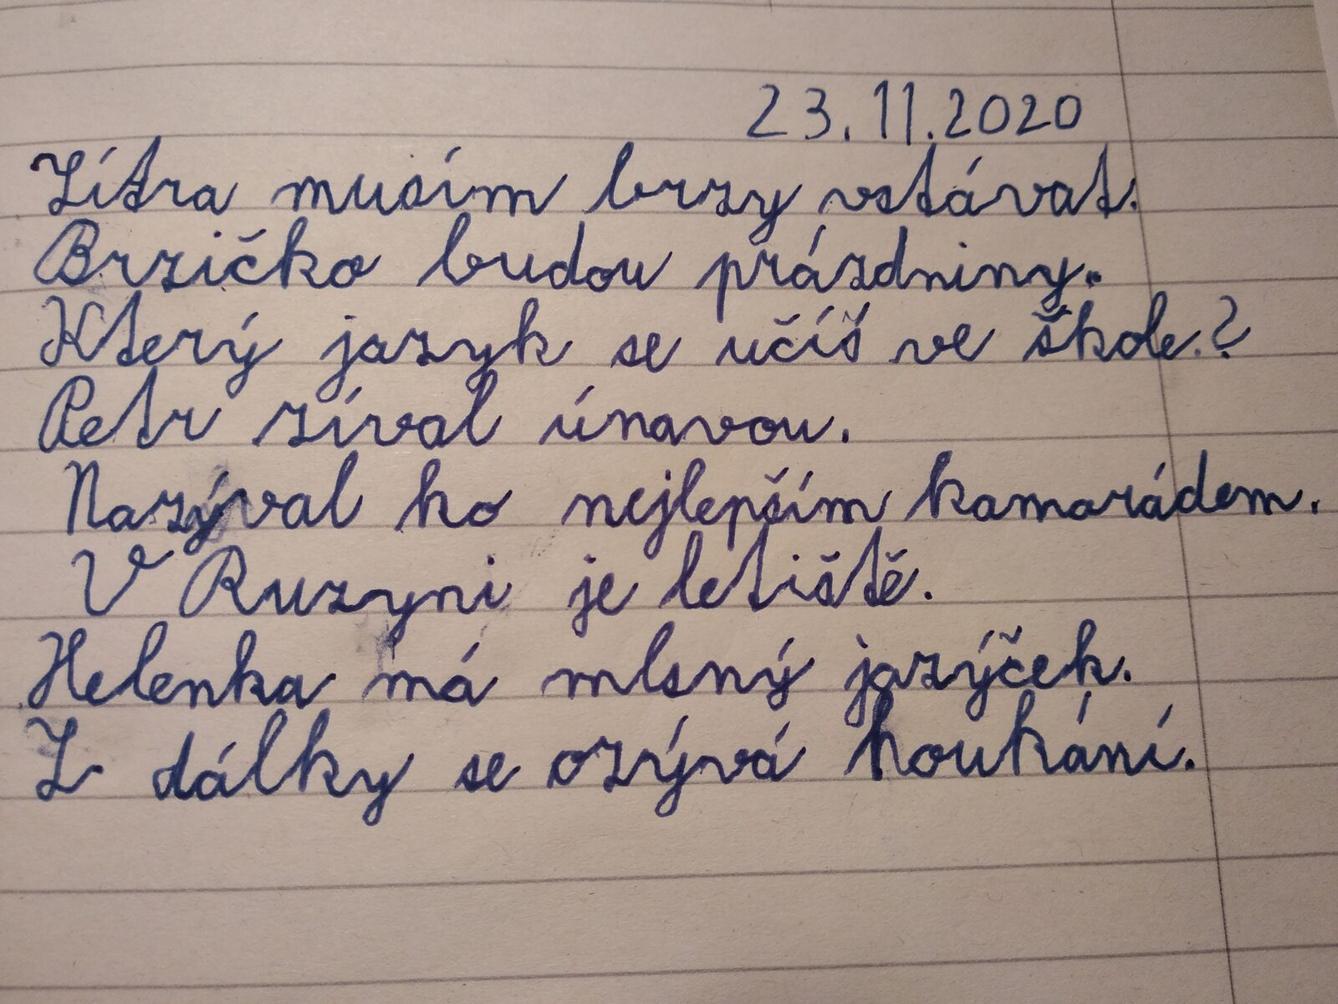 23.11.2020
Zítra musím brzy vstávat.
Brzičko budou prázdniny.
Který jazyk se učíš ve škole.?
Petr zíval únavou.
Nazýval ho nejlepším kamarádem.
V Ruzyni je letiště.
Helenka má mlsný jazýček.
Z dálky se ozývá houkání.